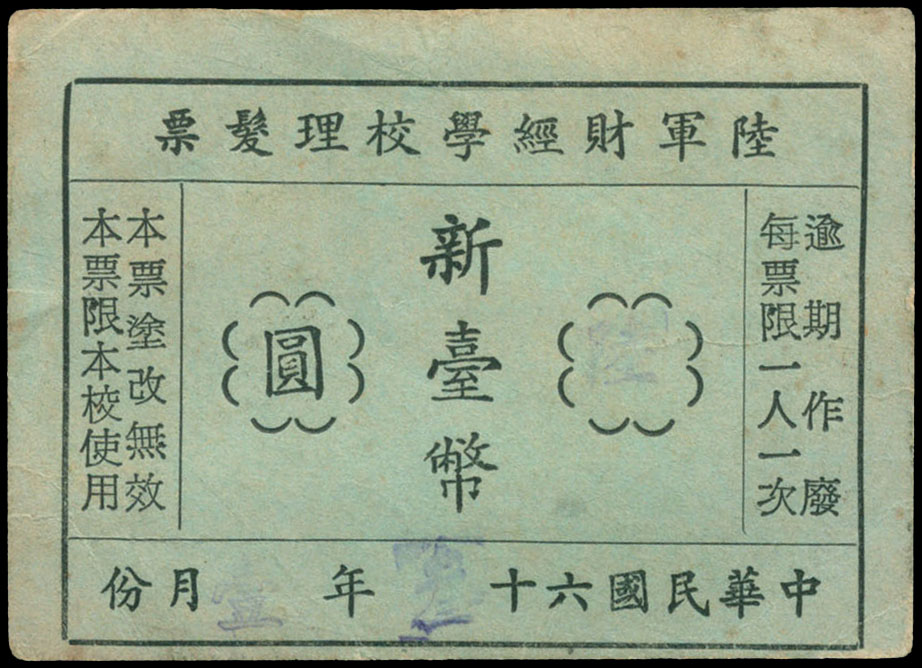 陸軍財經學校理髮票
逾期作廢
每票限一人一次
陸
新臺幣
圓
本票塗改無效
本票限本校使用
中華民國六十年壹月份